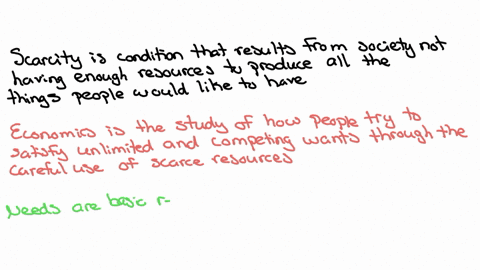 Scarcity is condition that results from society not
having enough resources to produce all the
things people would like to have
Economics is the study of how people try to
satisfy unlimited and competing wants through the
careful use of scarce resources
Needs are basic r-